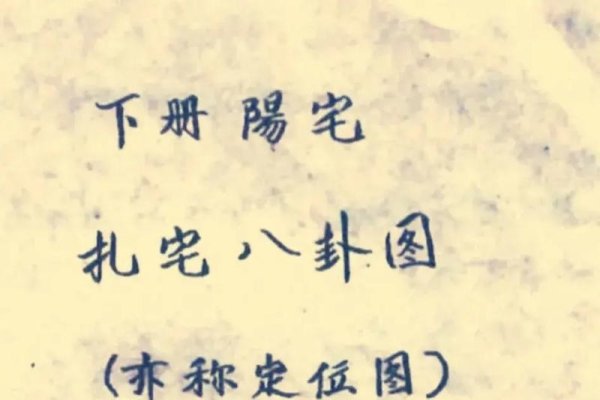 下册 陽宅
扎宅八卦图
(亦称定位图)